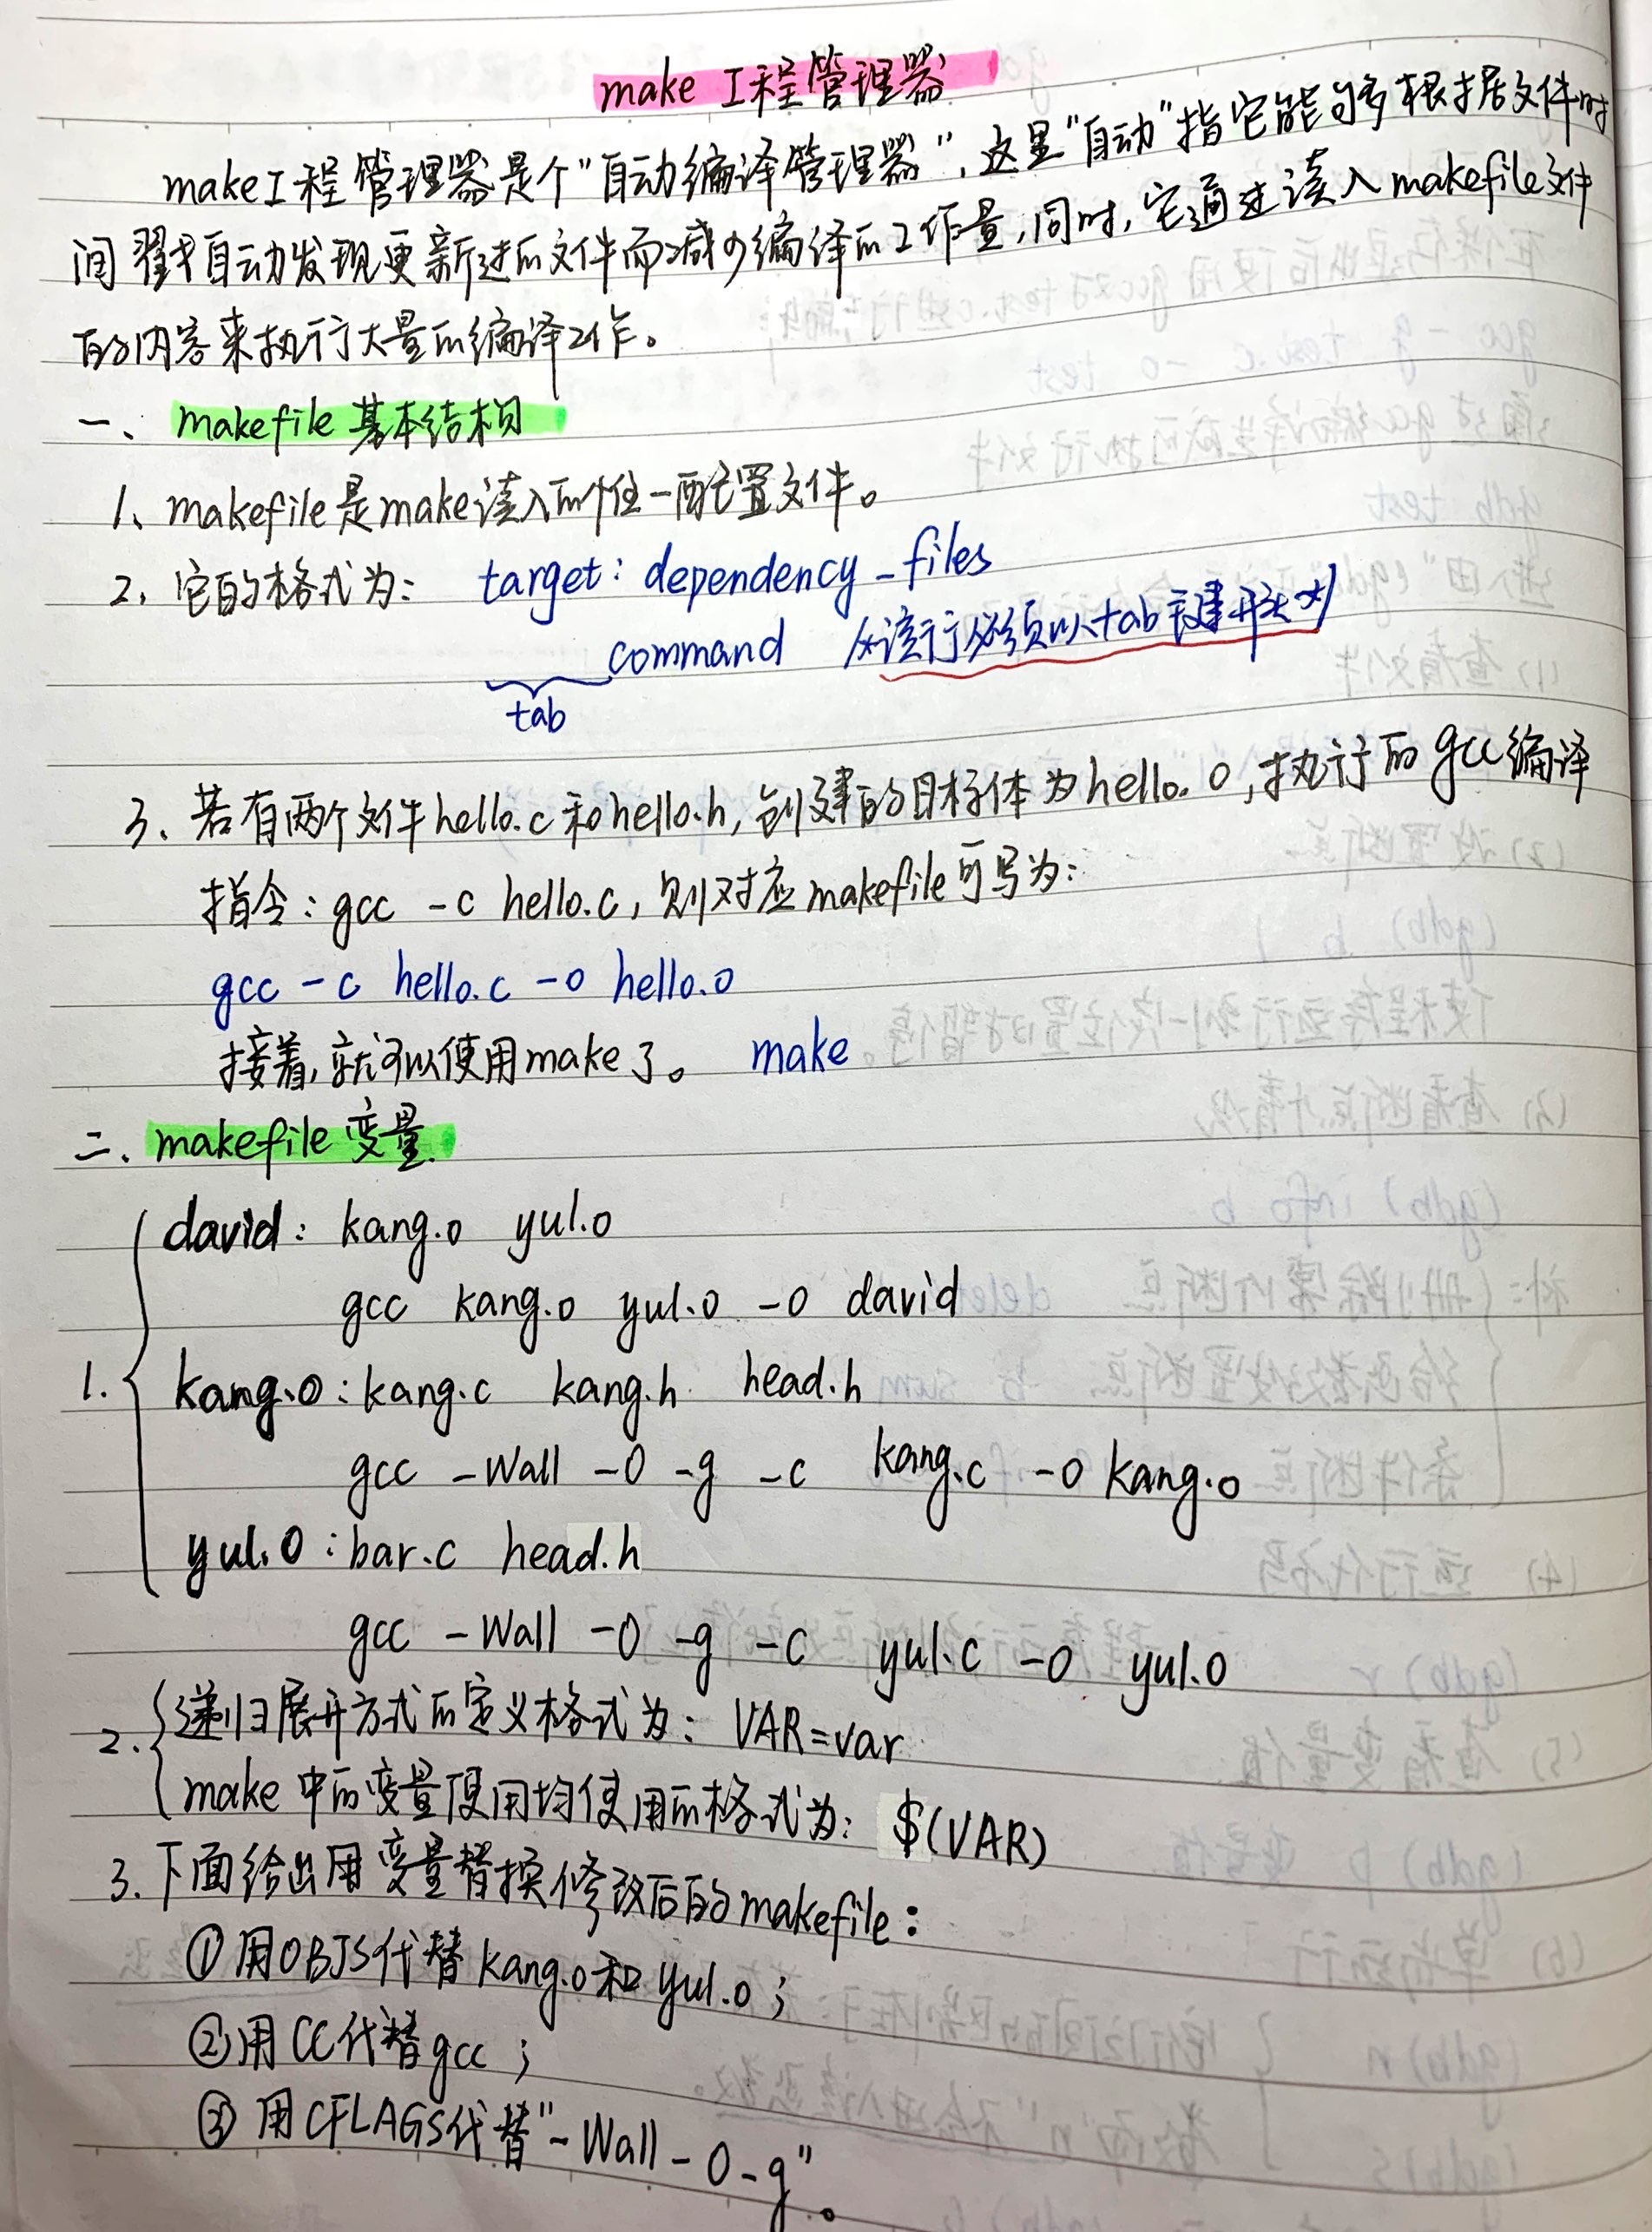 make工程管理器
make工程管理器是个“自动编译管理器”，这里“自动”指它能够根据文件时
间戳自动发现更新过的文件而减少编译的工作量，同时，它通过读入makefile文件
的内容来执行大量的编译工作。
一、makefile基本结构
1、makefile是make读入的唯一配置文件。
2、它的格式为： target: dependency_files
command /*该行必须以tab键开头*/
tab
3、若有两个文件hello.c和hello.h，创建的目标体为hello.o，执行的gcc编译
指令：gcc -c hello.c，则对应makefile可写为：
gcc -c hello.c -o hello.o
接着，就可以使用make了。 make
二、makefile变量
david: kang.o yul.o
gcc kang.o yul.o -o david
1. kang.o: kang.c kang.h head.h
gcc -Wall -O -g -c kang.c -o kang.o
yul.o: bar.c head.h
gcc -Wall -O -g -c yul.c -o yul.o
2. 递归展开方式的定义格式为：VAR=var
make中的变量使用均使用的格式为：$(VAR)
3. 下面给出用变量替换修改后的makefile：
①用OBJS代替kang.o和yul.o；
②用CC代替gcc；
③用CFLAGS代替"-Wall -O -g"。